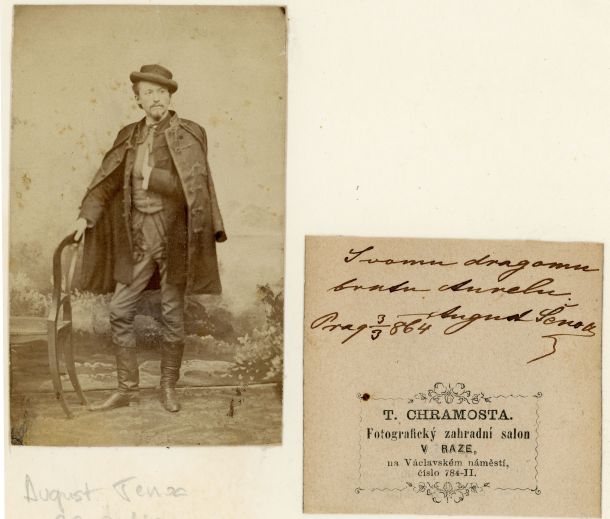 Svomu dragomu
bratu Aurelu.
Prag 3/3 864 August Šenoa
T. CHRAMOSTA.
Fotografický zahradní salon
V RAZE,
na Václavském náměstí,
číslo 784-II.
August